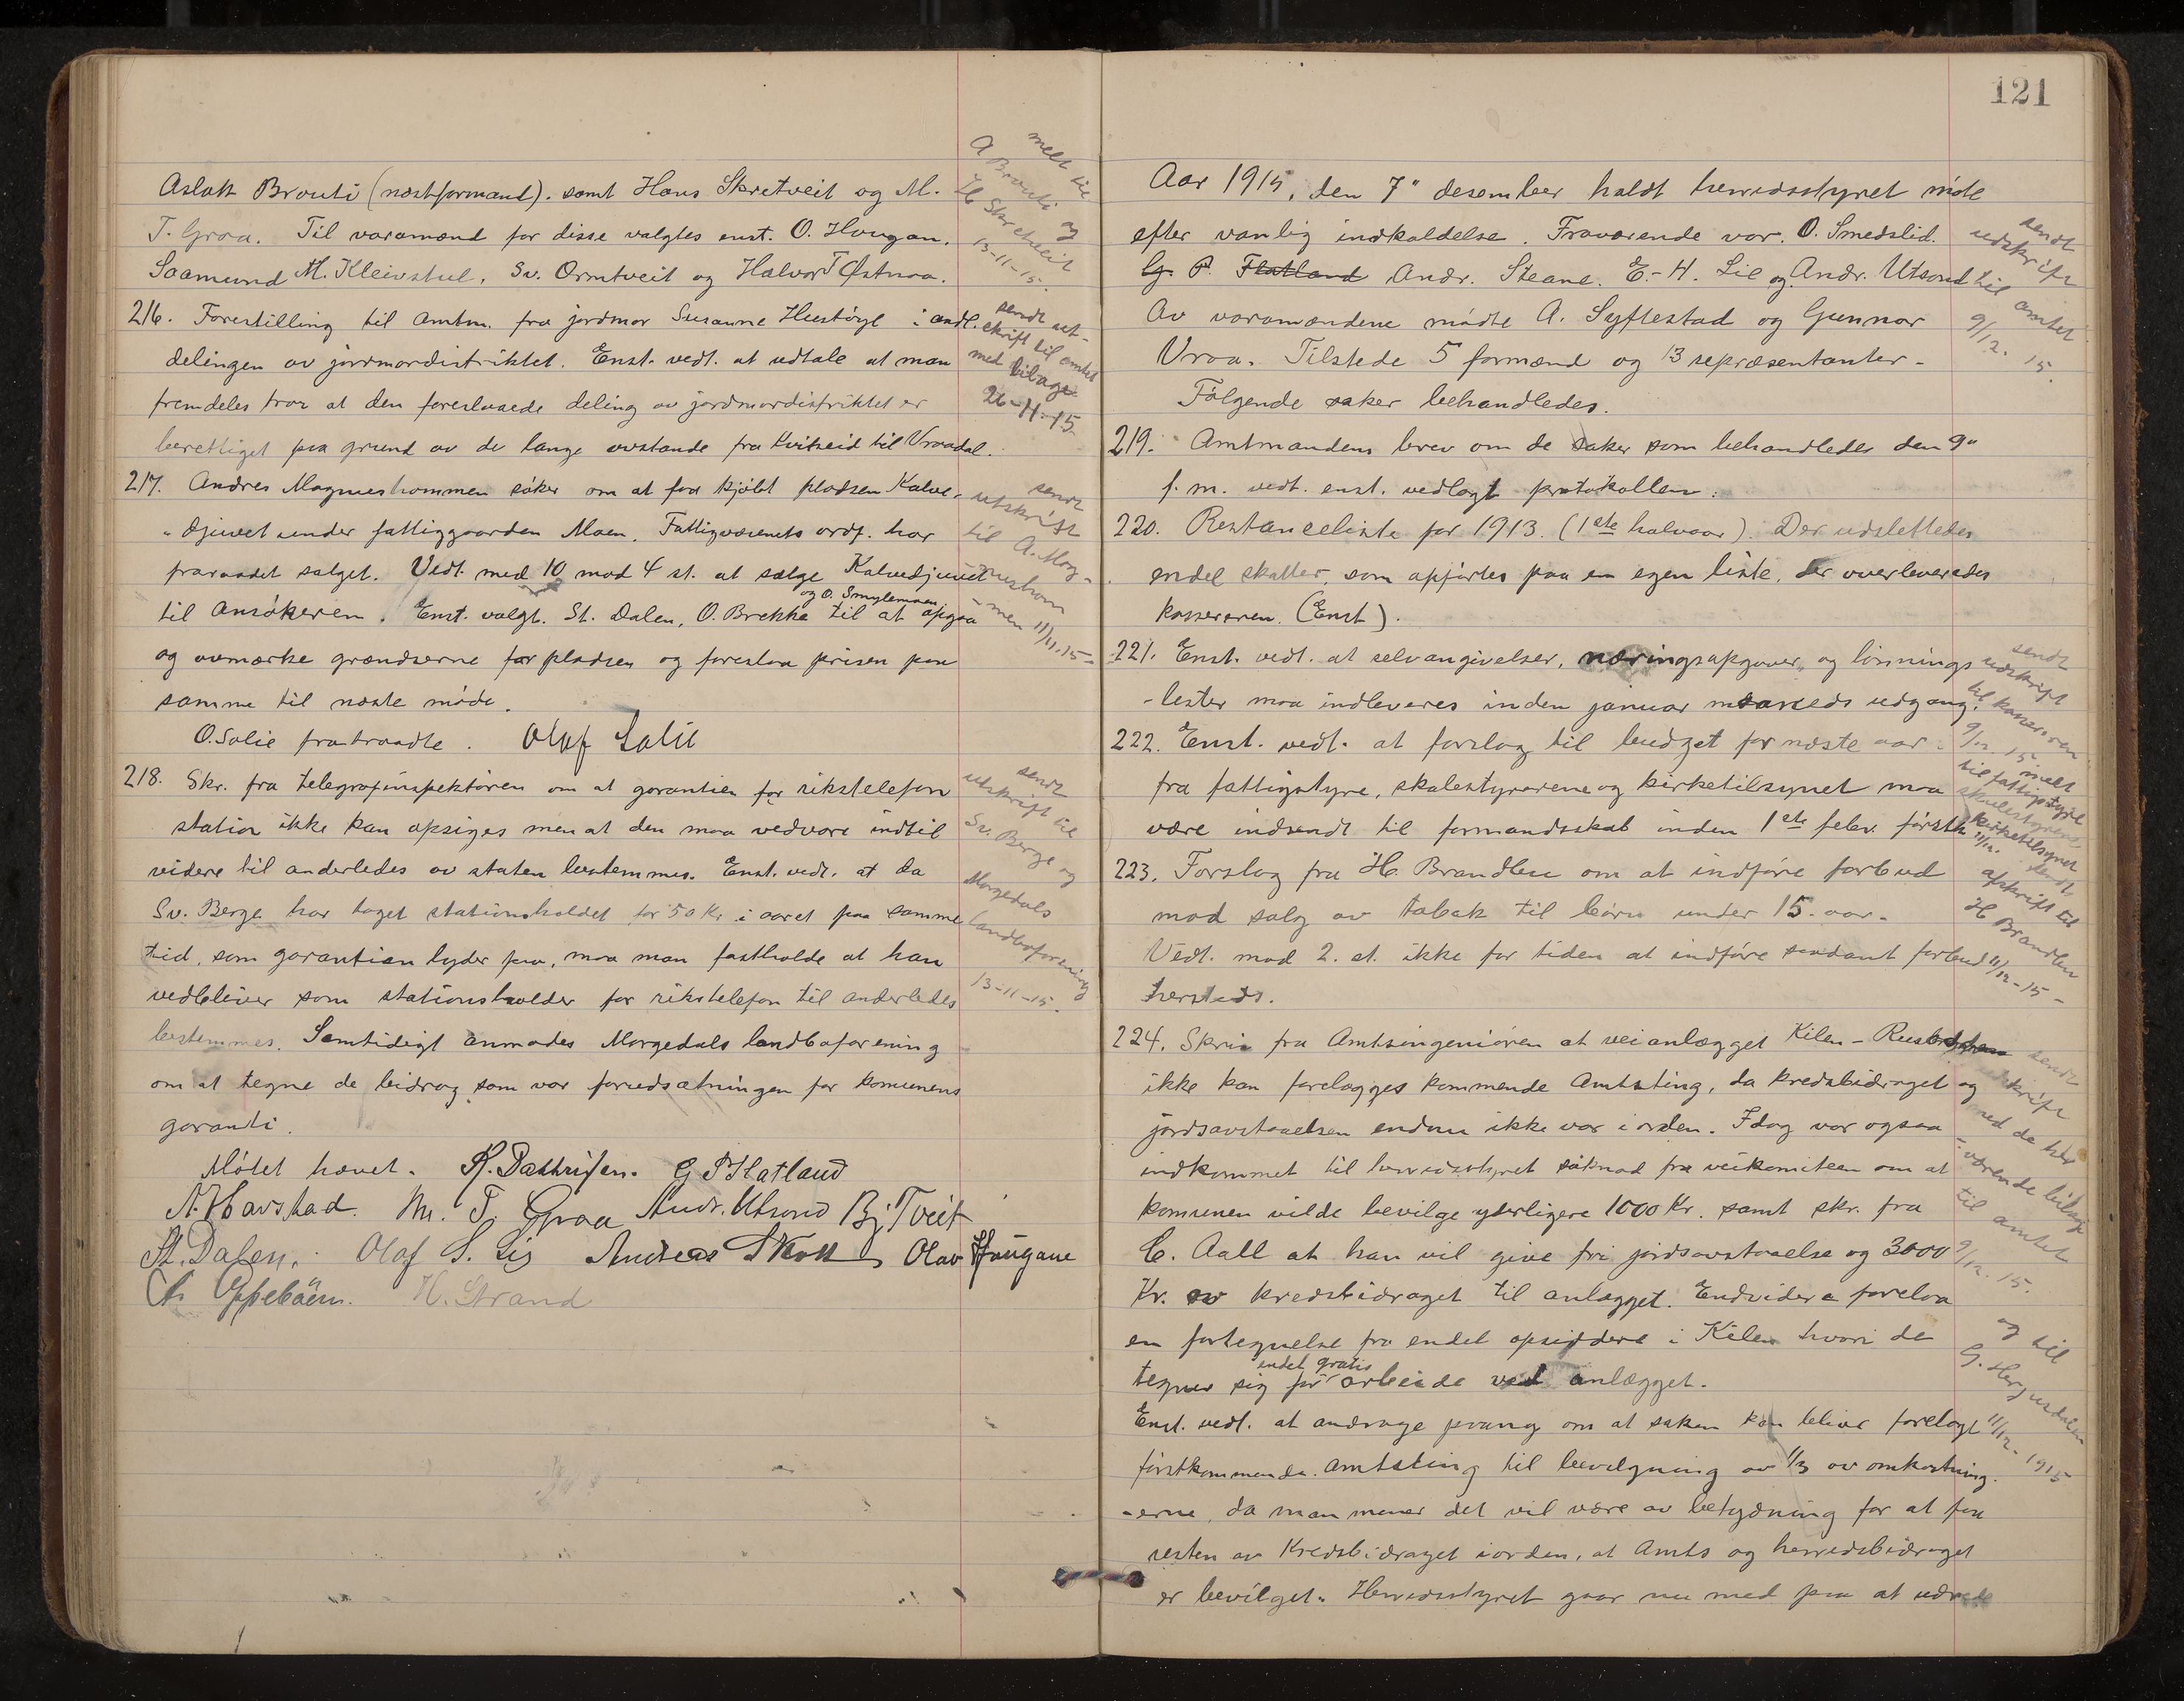 Aslak Brouti (næstformand). samt Hans Skretveit og M.
T. Groa. Til varamænd for disse valgtes enst. O. Hougan.
Saamund M. Kleivstul, Sv. Ormtveit og Halvor T Østraa.
melt til
A Brouti og
H Skretveit
13-11-15.
216. Forestilling til amtm. fra jordmor Susanne Hustöyl i andl.
delingen av jordmordistriktet. Enst. vedt. at udtale at man
fremdeles tror at den foreslaaede deling av jordmordistriktet er
berettiget paa grund av de lange avstande fra Kviteseid til Vraadal.
sendt ut-
skrift til amtet
med bilage
26-11-15
217. Andres Magneshommen söker om at faa kjöbt pladsen Kalve-
-djuvet under fattiggaarden Moen. Fattigvæsenets ordf. har
fraraadet salget. Vedt. med 10 mod 4 st. at sælge Kalvedjuvet
og O. Smylemoen
til Ansökeren. Enst. valgt. St. Dalen, O. Brekke til at opgaa
og avmærke grændserne for pladsen og foreslaa prisen paa
samme til næste möde.
O. Solie fratraadte. Olaf Solie
sendt
utskrift
til A. Mag-
neshom
-men 11/11.15-
218. Skr. fra telegrafinspektören om at garantien for rikstelefon
station ikke kan opsiges men at den maa vedvare indtil
videre til anderledes av staten bestemmes. Enst. vedt. at da
Sv. Berge har taget stationsholdet for 50 Kr i aaret paa samme
tid, som garantien lyder paa, maa man fastholde at han
vedbliver som stationsholder for rikstelefon til anderledes
bestemmes. Samtidigt anmodes Morgedals landboforening
om at tegne de bidrag som var forudsætningen for komunens
garanti.
sendt
utskrift til
Sv. Berge og
Morgedals
landboforening
13-11-15.
Mötet hævet. G P Flatland
A. Havstad. M. T. Groa Andr. Utsond Bj. Tveit
St. Dalen. Olaf S. Lie Andreas Olav Haugane
H. Strand
121
Aar 1915, den 7" desember holdt herredsstyret möte
efter vanlig indkaldelse. Fraværende var. O. Smedslid.
G. P. Flatland Andr. Steane. E.-H. Lie og Andr. Utsond
Av varamændene mödte A. Syftestad og Gunnar
Vraa. Tilstede 5 formænd og 13 repræsentanter-
Fölgende saker behandledes.
sendt
udskrift
til amtet
9/12. 15.
219. Amtmandens brev om de saker som behandledes den 9"
f. m. vedt. enst. vedlagt protokollen.
220. Restanceliste for 1913. (1ste halvaar). Der udslettedes
endel skatter, som opförtes paa en egen liste, der overleveredes
kassereren. (Enst).
221. Enst. vedt. at selvangivelser, næringsopgaver, og lönnings
-lister maa indleveres inden januar maaneds udgang.
sendt
udskrift
til kassereren
9/12. 15.
222. Enst. vedt. at forslag til budget for næste aar
fra fattigstyre, skolestyrerene og kirketilsynet maa
være indsendt til formandsskab inden 1ste febr. förstk
melt
til fattigstyre
skolestyrene
kirketilsynet
11/12.
223. Forslag fra H. Brandlien om at indföre forbud
mod salg av tobak til börn under 15. aar-
Vedt. mod 2. st. ikke for tiden at indföre saadant forbud
hersteds.
sendt
afskrift til
H Brandlien
11/12-15-
224. Skriv fra Amtsingeniören at veianlægget Kilen-
ikke kan forelægges kommende Amtsting, da kredsbidraget og
jordsavstaaelsen endnu ikke var i orden. Idag var ogsaa
indkommet til herredsstyret söknad fra veikomiteen om at
komunen vilde bevilge yterligere 1000 Kr. samt skr. fra
C. Aall at han vil give fri jordsavstaaelse og 3000
Kr. av kredsbidraget til anlægget. Endvidere forelaa
en fortegnelse fra endel opsiddere i Kilen hvori de
endel gratis
tegner sig for arbeide ved anlægget.
Enst. vedt. at andrage paany om at saken kan blive forelagt
förstkommende amtsting til bevilgning av 1/3 av omkostning.
-erne, da man mener det vil være av betydning for at faa
resten av Kredsbidraget iorden, at Amts og herredsbidraget
er bevilget. Herredsstyret gaar nu med paa at udrede
sendt
udskrift
med de her
-værende bilage
til amtet
9/12. 15.
og til
11/12. 1915